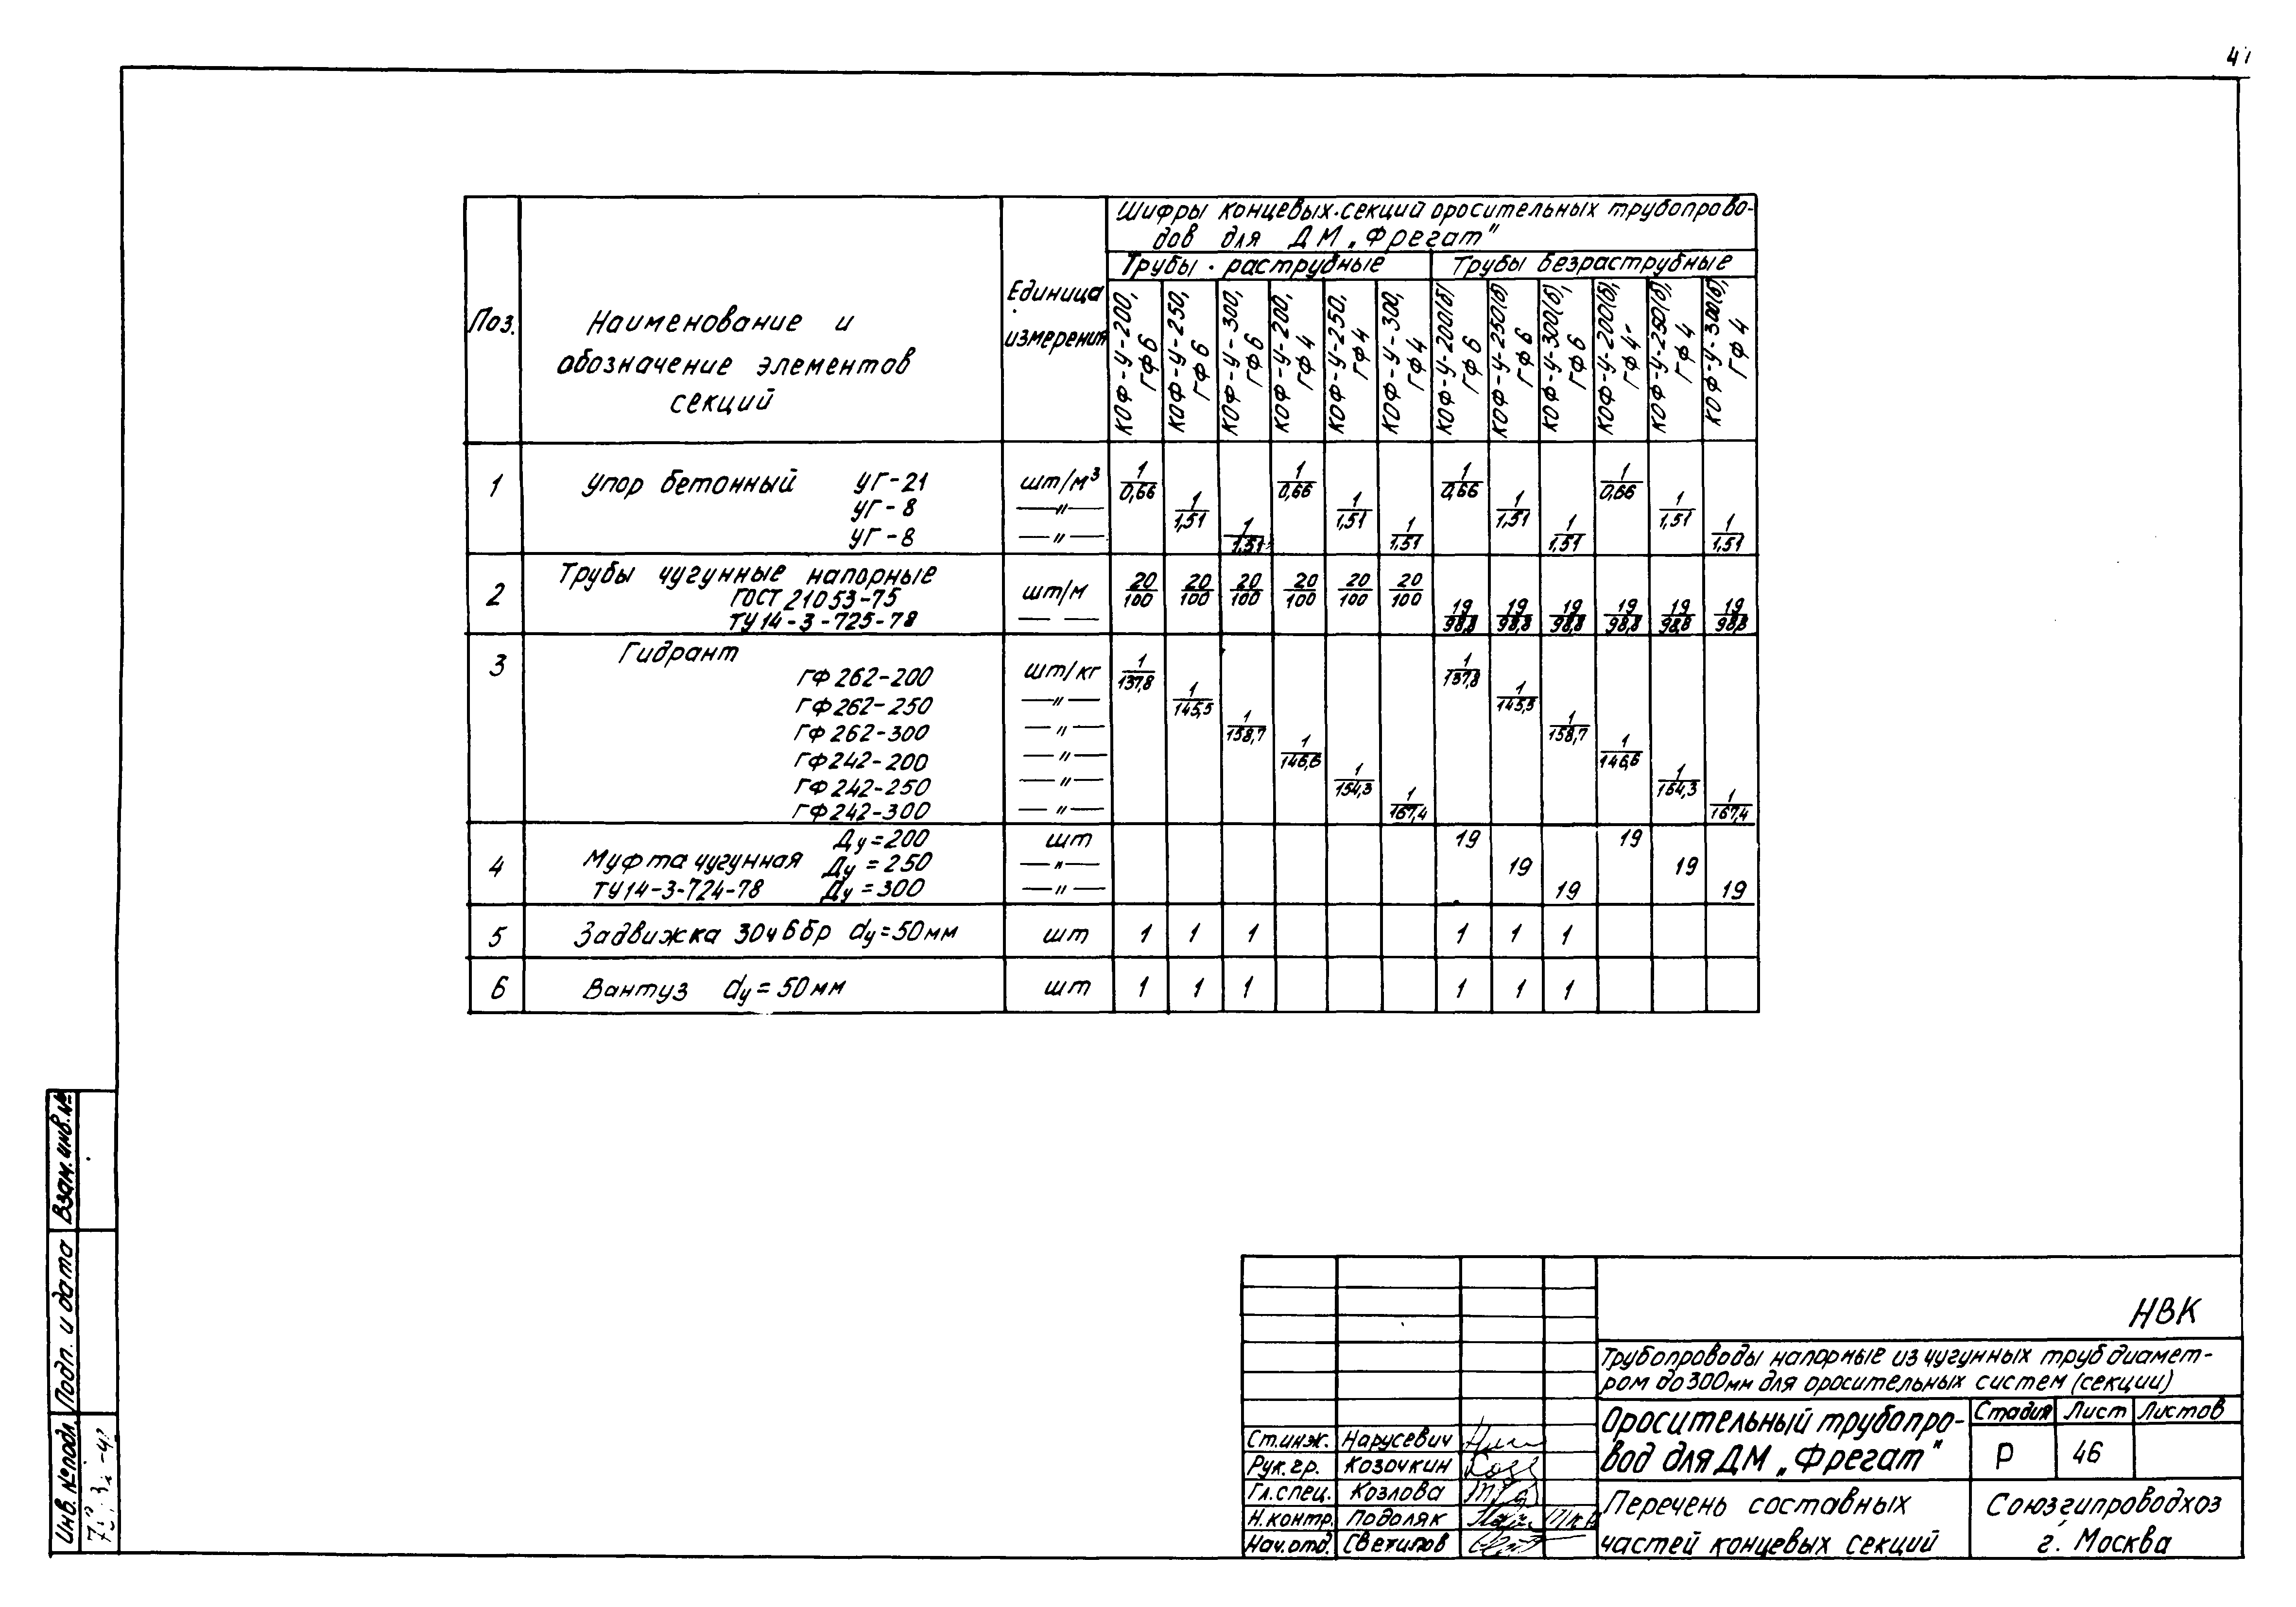 Поз.
Наименование и
обозначение элементов
секций
Единица
измерения
Шифры концевых секций оросительных трубопрово-
дов для ДМ „Фрегат"
Трубы раструбные
Трубы безраструбные
КОФ-У-200, ГФ6
КОФ-У-250, ГФ6
КОФ-У-300, ГФ6
КОФ-У-200, ГФ4
КОФ-У-250, ГФ4
КОФ-У-300, ГФ4
КОФ-У-200(б) ГФ6
КОФ-У-250(б) ГФ6
КОФ-У-300(б), ГФ6
КОФ-У-200(б), ГФ4
КОФ-У-250(б), ГФ4
КОФ-У-300(б), ГФ4
1 Упор бетонный УГ-21 шт/м³ 1/0,66 1/0,66 1/0,66 1/0,66
УГ-8 —"— 1/1,51 1/1,51 1/1,51 1/1,51
УГ-8 —"— 1/1,51 1/1,51 1/1,51 1/1,51
2 Трубы чугунные напорные
ГОСТ 21053-75 шт/м 20/100 20/100 20/100 20/100 20/100 20/100
ТУ14-3-725-78 — — 19/98,8 19/98,8 19/98,8 19/98,8 19/98,8 19/98,8
3 Гидрант
ГФ262-200 шт/кг 1/137,8 1/137,8
ГФ262-250 —"— 1/145,5 1/145,5
ГФ262-300 —"— 1/158,7 1/158,7
ГФ242-200 —"— 1/146,6 1/146,6
ГФ242-250 —"— 1/154,3 1/154,3
ГФ242-300 —"— 1/167,4 1/167,4
Ду=200 шт 19 19
4 Муфта чугунная Ду=250 —"— 19 19
ТУ14-3-724-78 Ду=300 —"— 19 19
5 Задвижка 30ч6бр dу=50мм шт 1 1 1 1 1 1
6 Вантуз dу=50мм шт 1 1 1 1 1 1
Взам. инв.№
Подп. и дата
Инв. №подл.
НВК
Трубопроводы напорные из чугунных труб диамет-
ром до 300мм для оросительных систем (секции)
Оросительный трубопро-
вод для ДМ „Фрегат"
Стадия Лист Листов
Р 46
Перечень составных
частей концевых секций
Союзгипроводхоз
г. Москва
Ст.инж. Нарусевич
Рук.гр. Козочкин
Гл.спец. Козлова
Н.контр. Подоляк
Нач.отд. Светилов